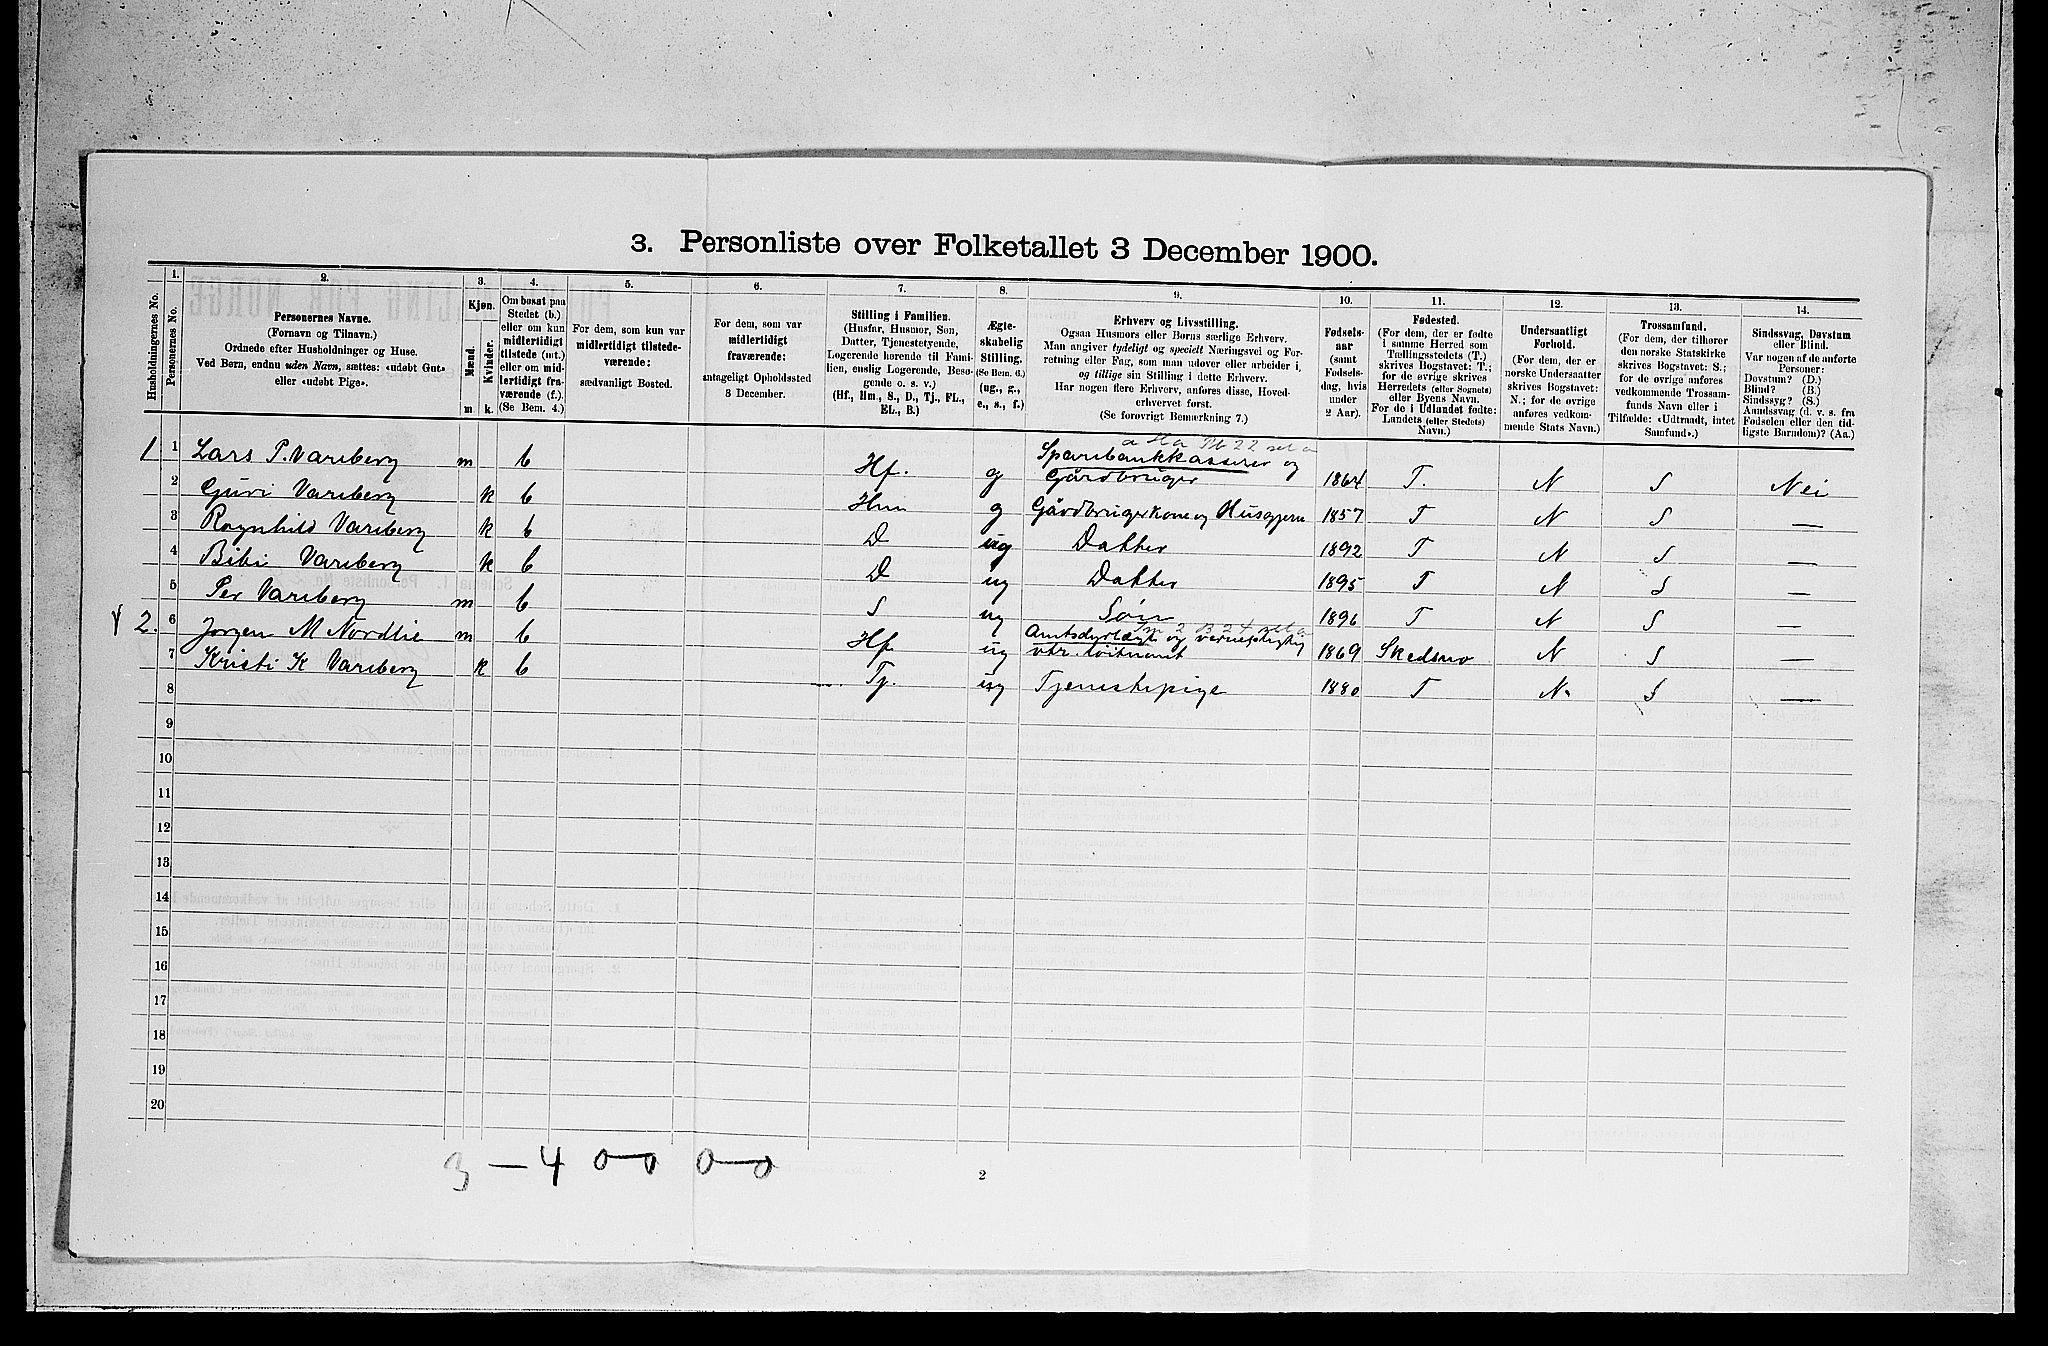 3. Personliste over Folketallet 3 December 1900.
Husholdningernes No.
1.
Personernes No.
2.
Personernes Navne.
(Fornavn og Tilnavn.)
Ordnede efter Husholdninger og Huse.
Ved Børn, endnu uden Navn, sættes: «udøbt Gut»
eller «udøbt Pige».
3.
Kjøn.
Mænd.
Kvinder.
m k.
4.
Om bosat paa
Stedet (b.)
eller om kun
midlertidigt
tilstede (mt.)
eller om mid-
lertidigt fra-
værende (f.).
(Se Bem. 4.)
5.
For dem, som kun var
midlertidigt tilstede-
værende:
sædvanligt Bosted.
6.
For dem, som var
midlertidigt
fraværende:
antageligt Opholdssted
3 December.
7.
Stilling i Familien.
(Husfar, Husmor, Søn,
Datter, Tjenestetyende,
Logerende hørende til Fami-
lien, enslig Logerende, Besø-
gende o. s. v.)
(Hf., Hm., S., D., Tj., FL.,
EL., B.)
8.
Ægte-
skabelig
Stilling.
(Se Bem. 6.)
(ug., g.,
e., s., f.)
9.
Erhverv og Livsstilling.
Ogsaa Husmors eller Børns særlige Erhverv.
Man angiver tydeligt og specielt Næringsvei og For-
retning eller Fag, som man udøver eller arbeider i,
og tillige sin Stilling i dette Erhverv.
Har nogen flere Erhverv, anføres disse, Hoved-
erhvervet først.
(Se forøvrigt Bemærkning 7.)
10.
Fødsels-
aar
(samt
Fødsels-
dag, hvis
under
2 Aar).
11.
Fødested.
(For dem, der er fødte
i samme Herred som
Tællingsstedets (T.)
skrives Bogstavet: T.;
for de øvrige skrives
Herredets (eller Sognets)
eller Byens Navn.
For de i Udlandet fødte:
Landets (eller Stedets)
Navn.)
12.
Undersaatligt
Forhold.
(For dem, der er
norske Undersaatter
skrives Bogstavet:
N.; for de øvrige
anføres vedkom-
mende Stats Navn.)
13.
Trossamfund.
(For dem, der tilhører
den norske Statskirke
skrives Bogstavet: S.;
for de øvrige anføres
vedkommende Trossam-
funds Navn eller i
Tilfælde: «Udtraadt, intet
Samfund».)
14.
Sindssvag, Døvstum
eller Blind.
Var nogen af de anførte
Personer:
Døvstum? (D.)
Blind? (B.)
Sindssyg? (S.)
Aandssvag (d. v. s. fra
Fødselen eller den tid-
ligste Barndom)? (Aa.)
1 1 Lars P. Vareberg m b Hf. g Sparebankkasserer og
Gårdbruger 1864 T. N S Nei
2 Guri Vareberg k b Hm g Gårdbrugerkone og Husgjern 1857 T N S —
3 Ragnhild Vareberg k b D ug Datter 1892 T N S —
4 Bibi Vareberg k b D ug Datter 1895 T N S —
5 Per Vareberg m b S ug Søn 1896 T N S —
2. 6 Jørgen M Nordlie m b Hf ug Amtsdyrlæge og vernepligtig
vtr. løitnant 1869 Skedsmo N S —
7 Kristi K Vareberg k b Tj. ug Tjenestepige 1880 T N. S —
8
9
10
11
12
13
14
15
16
17
18
19
20
3 — 4 0—0 0—0
2